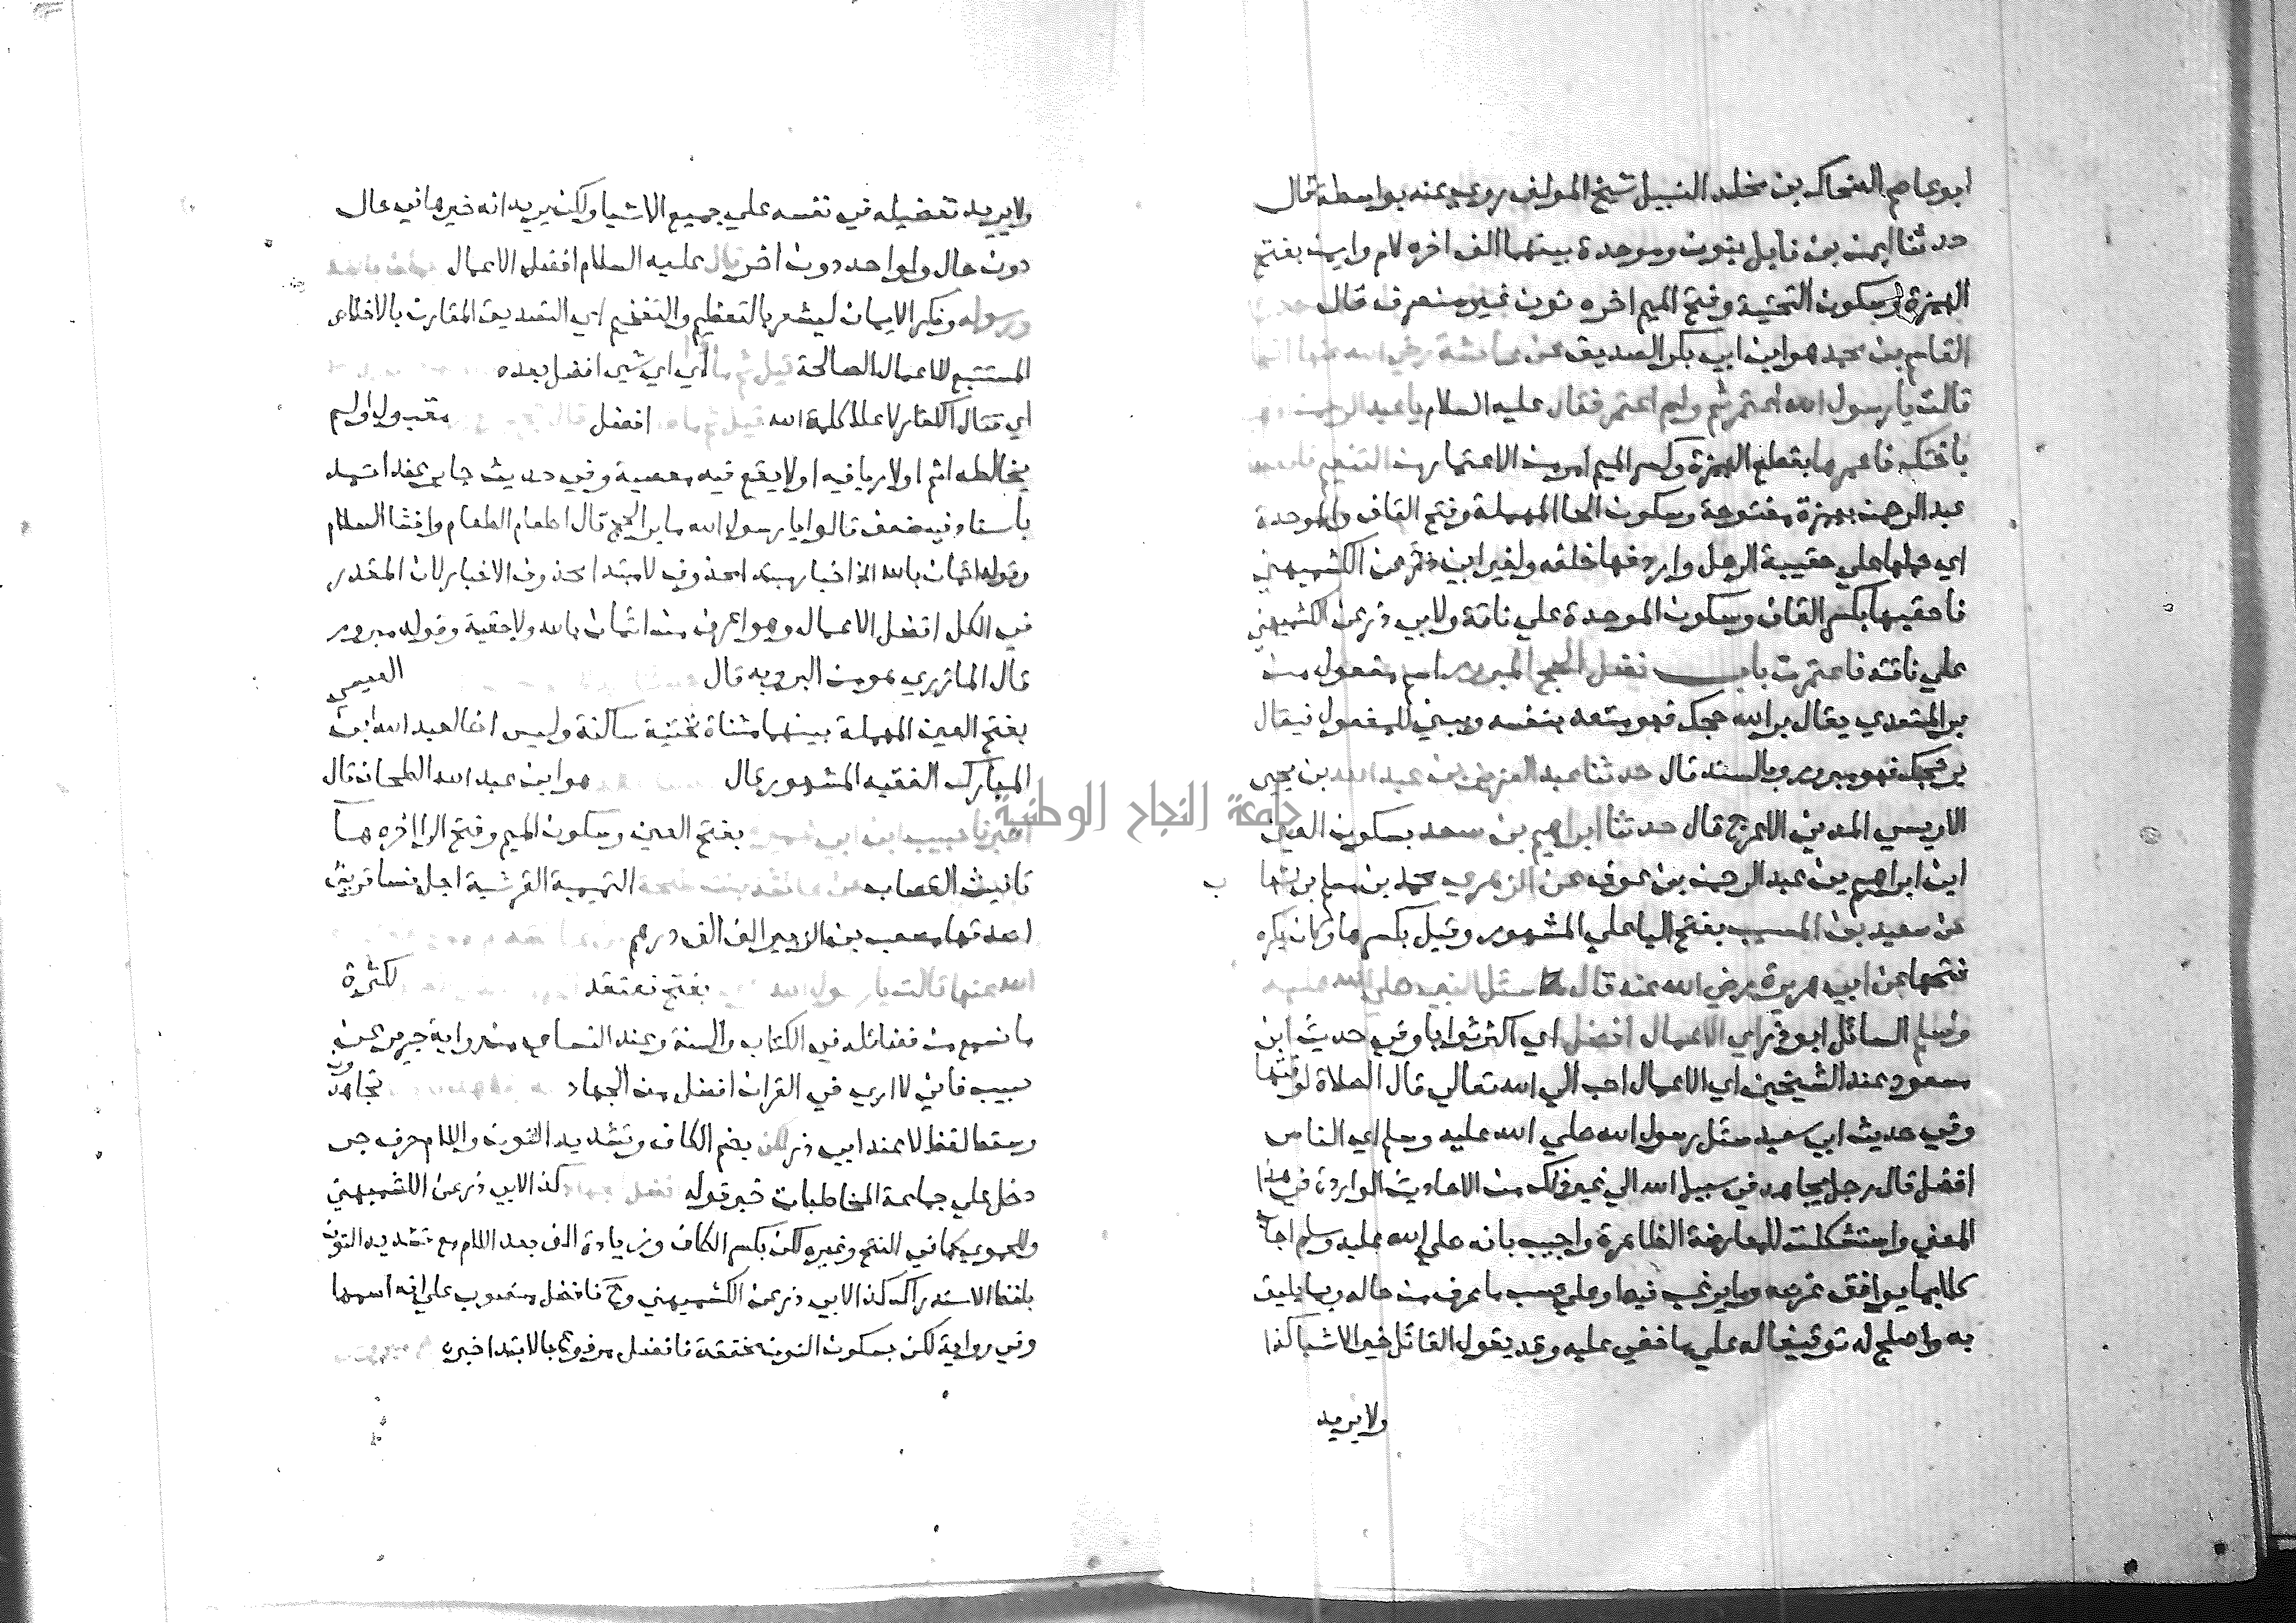 ابو عاصم الضحاك بن مخلد النبيل شيخ المولف روي عنه بواسطة قال
حدثنا ايمن بن نابل بنون وموحدة بينهما الف اخره لام وايمن بفتح
الهمزة وسكون التحتية وفتح الميم اخره نون غير منصرف قال
القاسم بن محمد هو ابن ابي بكر الصديق عن عائشة رضي الله عنها انها
قالت يا رسول الله اعتمرتم ولم اعتمر فقال عليه السلام يا عبد الرحمن اذهب
باختك فاعمرها بقطع الهمزة وكسر الميم امر من الاعتمار من التنعيم
عبد الرحمن بهمزة مفتوحة وسكون الحا المهملة وفتح القاف والموحدة
اي حملها علي حقيبة الرحل واردفها خلفه ولغير ابي ذر عن الكشميهني
فاحقبها بكسر القاف وسكون الموحدة علي ناقة ولابي ذر عن الكشميهني
علي ناقته فاعتمرت باب فضل الحج المبرور اسم مفعول من
بر المتعدي يقال بر الله حجك فهو متعد بنفسه ويبني للمفعول فيقال
بر حجك فهو مبرور وبالسند قال حدثنا عبد العزيز بن عبد الله بن يحيي
الاويسي المدني الاعرج قال حدثنا ابراهيم بن سعد بسكون العين
ابن ابراهيم بن عبد الرحمن بن عوف عن الزهري محمد بن مسلم بن شها ب
عن سعيد بن المسيب بفتح اليا علي المشهور وقيل بكسرها وكان يكره
فتحها عن ابي هريرة رضي الله عنه قال سئل النبي صلي الله عليه
وسلم السائل ابو ذر اي الاعمال افضل اي اكثر ثوابا وفي حديث ابن
مسعود عند الشيخين اي الاعمال احب الي الله تعالي قال الصلاة لوقتها
وفي حديث ابي سعيد سئل رسول الله صلي الله عليه وسلم اي الناس
افضل قال رجل يجاهد في سبيل الله الي غير ذلك من الاحاديث الواردة في هذا
المعني واستشكلت للمعارضة الظاهرة واجيب بانه صلي الله عليه وسلم اجاب
كلا بما يوافق غرضه وما يرغب فيه او علي حسب ما عرف من حاله وبما يليق
به واصلح له توقيفا له علي ما خفي عليه وقد يقول القائل خير الاشيا كذا
ولا يريد
ولا يريد تفضيله في نفسه علي جميع الاشيا ولكن يريد انه خيرها في حال
دون حال ولواحد دون اخر قال عليه السلام افضل الاعمال
ورسوله ونكر الايمان ليشعر بالتعظيم والتفخيم اي التصديق المقارن بالاخلاص
المستتبع للاعمال الصالحة قيل ثم ما اي اي شي افضل بعده
اي قتال الكفار لاعلا كلمة الله افضل مقبول او لم
يخالطه اثم او لا ريا فيه او لا يقع فيه معصية وفي حديث جابر عند احمد
باسناد فيه ضعف قالوا يا رسول الله ما بر الحج قال اطعام الطعام وافشا السلام
وقوله ايمان بالله الخ اخبار مبتد امحذوف لا مبتدا محذوف الاخبار لان المقدر
في الكل افضل الاعمال وهو اعرف من ايمان بالله ولاحقيه وقوله مبرور
قال المازري هو من البر وبه قال العيشي
بفتح العين المهملة بينهما مثناة تحتية ساكنة وليس اخا لعبد الله ابن
المبارك الفقيه المشهور قال هو ابن عبد الله الطحان قال
اخبرنا حبيب ابن ابي عمرة بفتح العين وسكون الميم وفتح الرا اخره ها
تانيث القصاب عن عائشة بنت طلحة التيمية القرشية اجل نسا قريش
اصدقها مصعب بن الزبير الف الف درهم
الله عنها قالت يا رسول الله بفتح نعتقد لكثرة
ما نسمع من فضائله في الكتاب والسنة وعند النساي من رواية جرير عن
حبيب فاني لا اري في القران افضل من الجهاد نجاهد
وسقط لفظ لا عند ابي ذر لكن بضم الكاف وتشديد النون واللام حرف جر
دخل علي جماعة المخاطبات خبر قوله افضل الجهاد كذا لابي ذر عن الكشميهني
والحموي كما في الفتح وغيره لكن بكسر الكاف وزيادة الف بعد اللام مع تشديد النون
بلفظ الاستدراك كذا لابي ذر عن الكشميهني وح فافضل منصوب علي انه اسمها
وفي رواية لكن بسكون النون مخففة فافضل مرفوع بالابتدا خبره
جامعة النجاح الوطنية